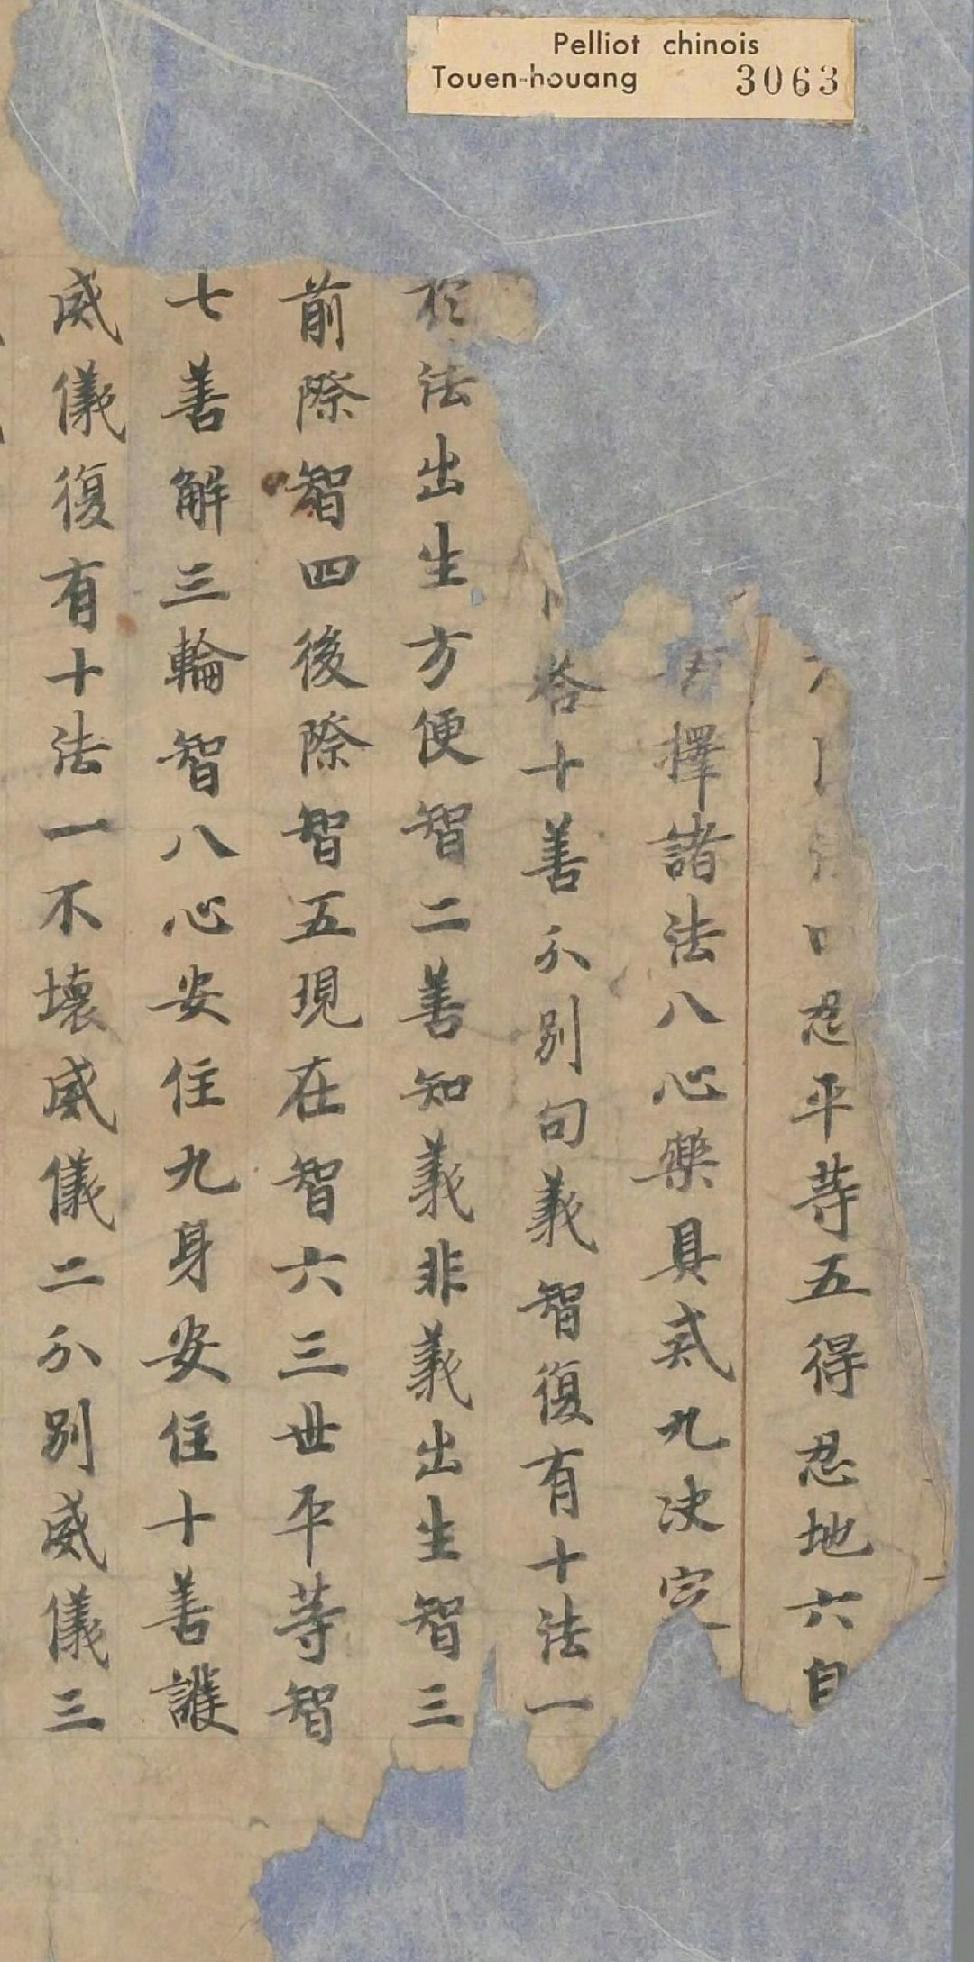 Pelliot chinois
Touen-houang 3063
忍平等五得忍地六自
擇諸法八心樂具戒九決定
答十善分別句義智復有十法一
法出生方便智二善知義非義出生智三
前際智四後際智五現在智六三世平等智
七善解三輪智八心安住九身安住十善護
威儀復有十法一不壞威儀二分別威儀三